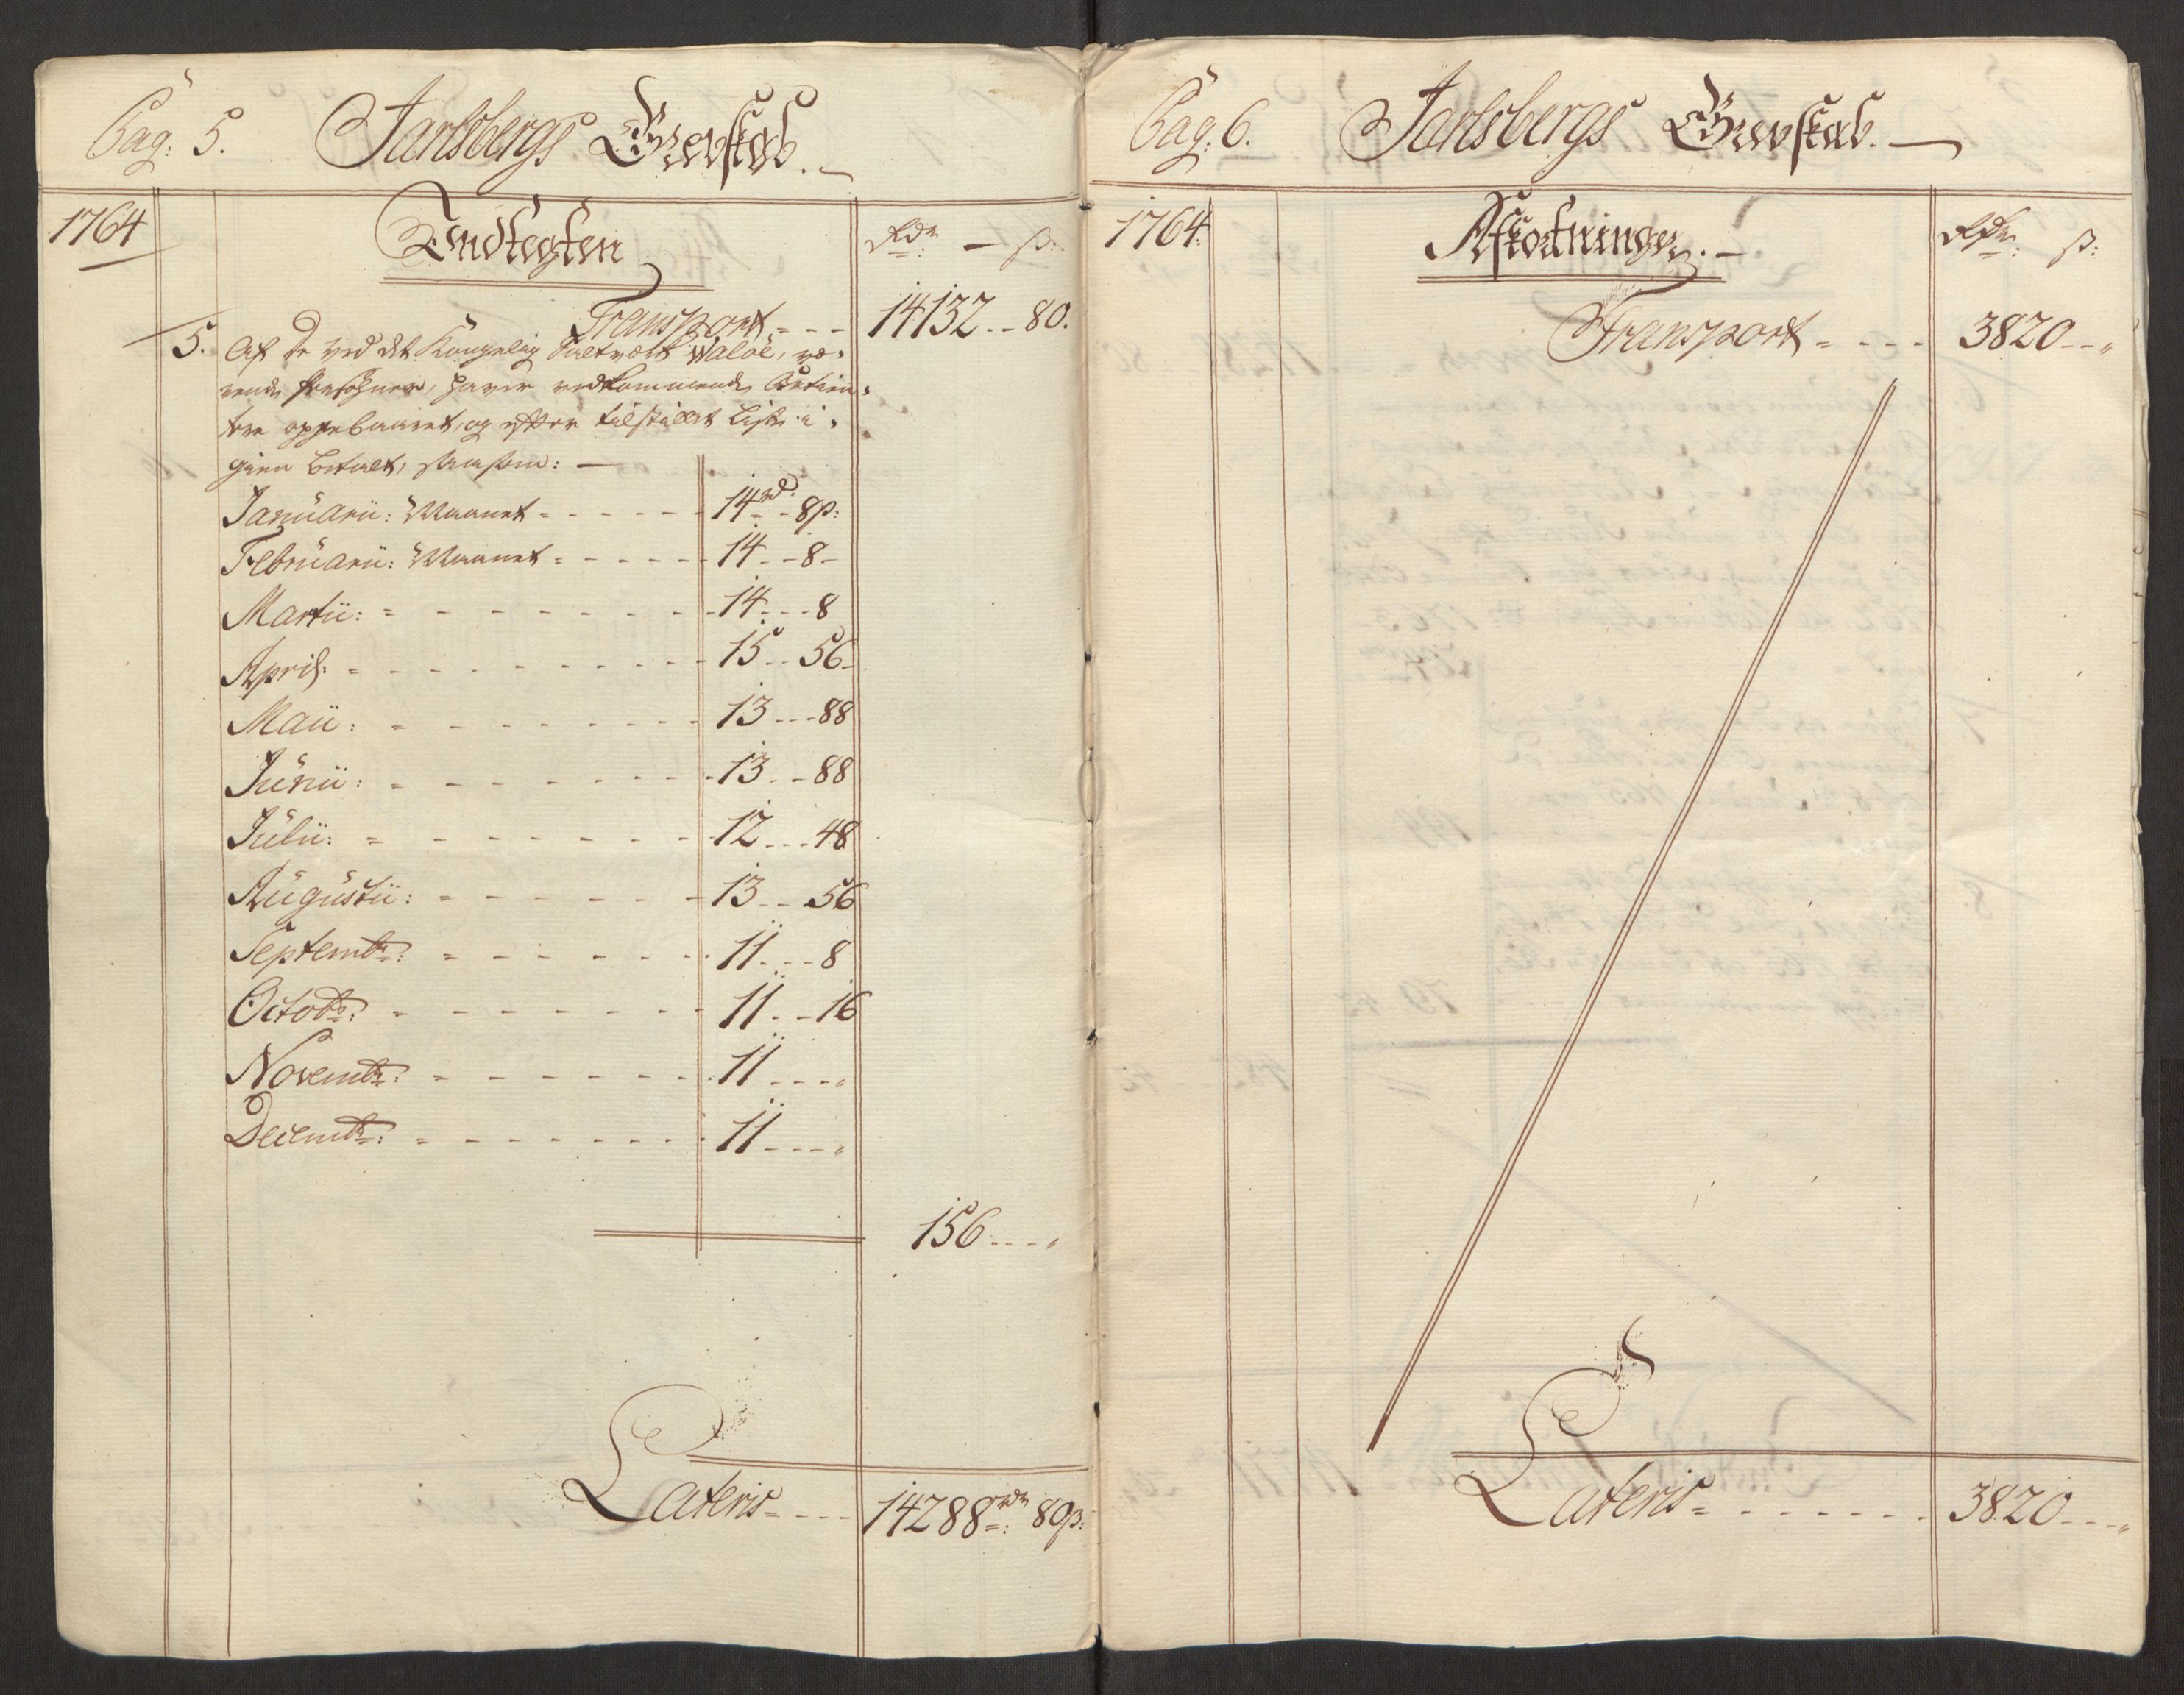 Pag: 5. Jarlsbergs Grevskab.
1764 Indtegten Rdr: ß:
Transport 14132 80.
5. Af de ved det Kongelig Saltværk Waløe, væ-
rende Persohner, haver vedkommende Betien-
tere oppebaaret, og efter tilstillet Liste i-
gien betalt, saasom:
Januarii: Maanet 14rd: 8ß:
Februarii: Maanet 14 8
Martii: 14 8
April: 15 56
Maii: 13 88
Junii: 13 88
Julii: 12 48
Augustii: 13 56
Septembr: 11 8
Octobr: 11 16
Novembr: 11 "
Decembr: 11 "
156 "
Lateris 14288rdr: 80ß:
Pag: 6. Jarlsbergs Grevskab.
1764: Afkortninger. Rdr: ß:
Transport 3820 "
Lateris 3820 "